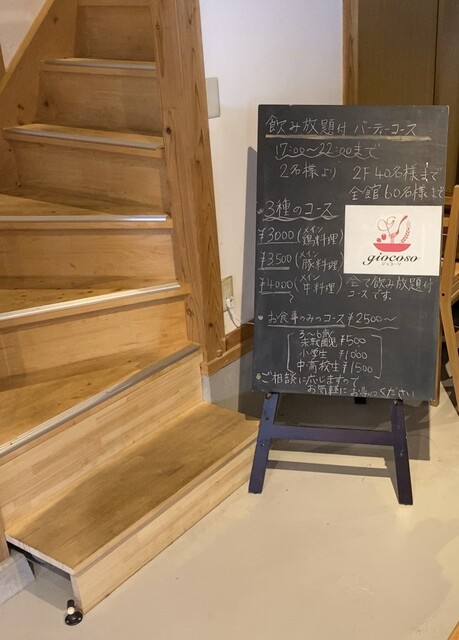 飲み放題付 パーティーコース
17:00〜22:00まで
2名様より 2F 40名様まで
全館60名様まで
3種のコース
¥3000 (メイン 鶏料理)
¥3500 (メイン 豚料理)
¥4000 (メイン 牛料理)
全て飲み放題付
コースです。
giocoso
ジョコーソ
お食事のみのコース ¥2500〜
3〜6歳
未就園児 ¥500
小学生 ¥1000
中高校生 ¥1500
ご相談に応じますので
お気軽にお申つけください